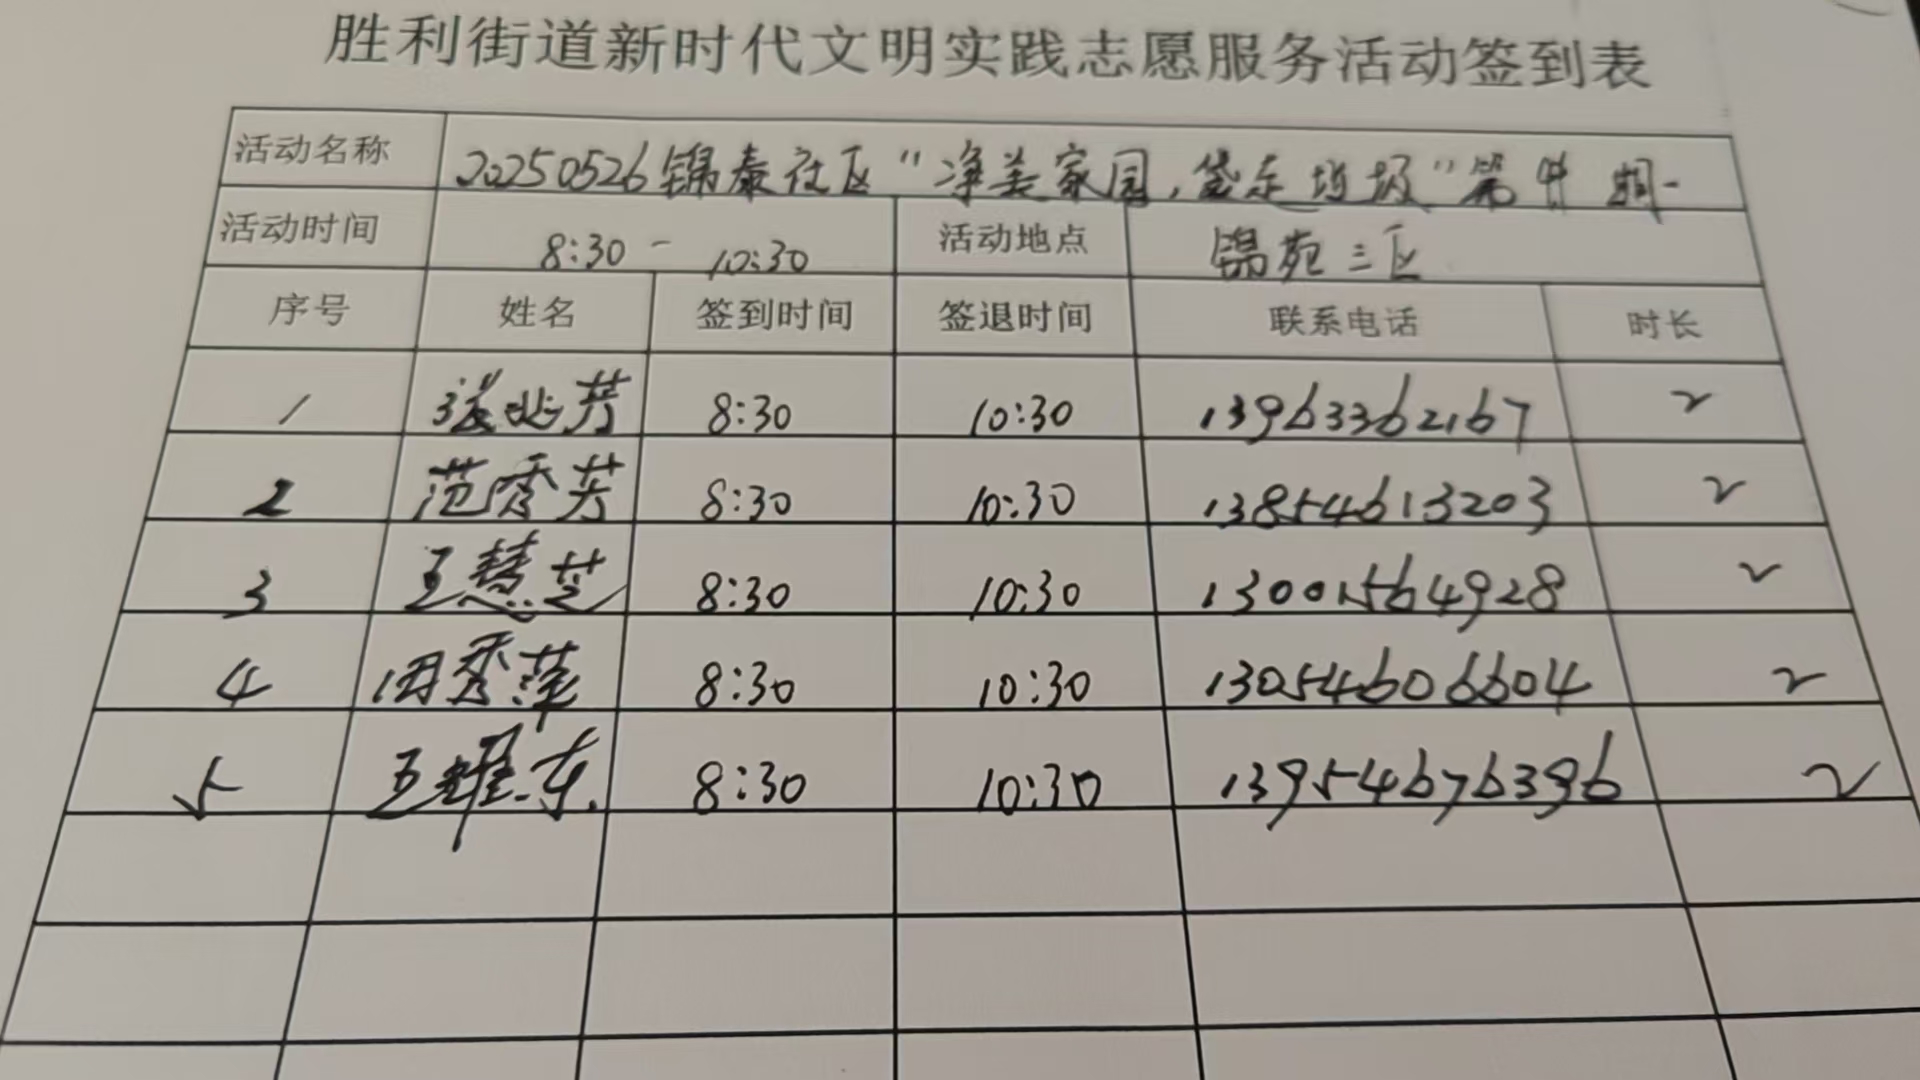 胜利街道新时代文明实践志愿服务活动签到表
活动名称 20250526锦泰社区“净美家园，袋走垃圾”第 期
活动时间 8:30 - 10:30 活动地点 锦苑三区
序号 姓名 签到时间 签退时间 联系电话 时长
1 芳 8:30 10:30 13963362167 2
2 范秀芳 8:30 10:30 13854613203 2
3 王慧芝 8:30 10:30 13001564928 2
4 田秀萍 8:30 10:30 13054606604 2
5 王耀东 8:30 10:30 13954676396 2